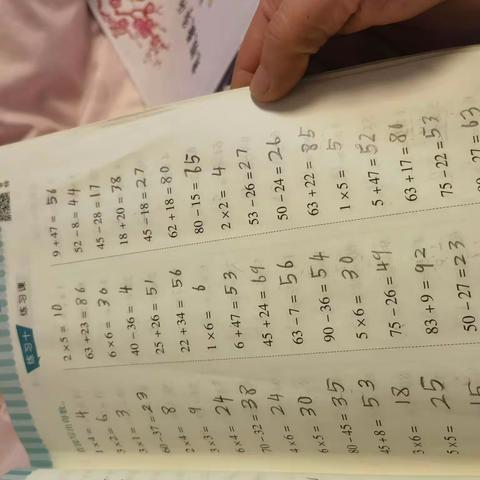 练习十 练习课
直接写出得数。
1×4= 4
3×2= 6
3×1= 3
60-37= 23
2×4= 8
3×3= 9
6×4= 24
70-32= 38
4×6= 24
6×5= 30
80-45= 35
45+8= 53
3×6= 18
5×5= 25
15
2×5= 10
63+23= 86
6×6= 36
40-36= 4
25+26= 51
22+34= 56
1×6= 6
6+47= 53
45+24= 69
63-7= 56
90-36= 54
5×6= 30
75-26= 49
83+9= 92
50-27= 23
9+47= 56
52-8= 44
45-28= 17
18+20= 38
45-18= 27
62+18= 80
80-15= 65
2×2= 4
53-26= 27
50-24= 26
63+22= 85
1×5= 5
5+47= 52
63+17= 80
75-22= 53
-27= 63